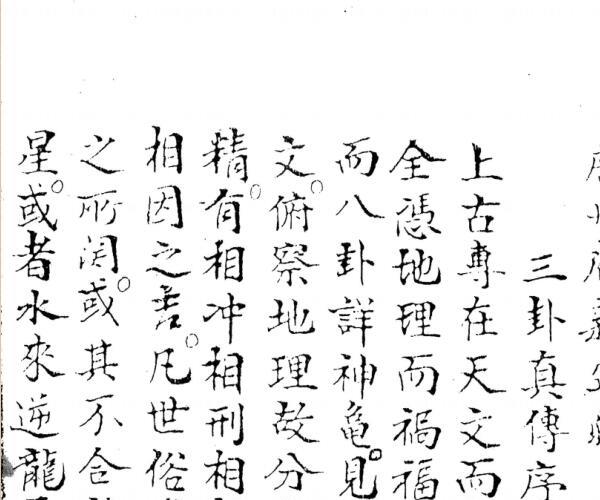 三卦真傳序
上古專在天文而
全憑地理而禍福
而八卦詳神龜見
文俯察地理故分
精有相冲相刑相
相因之害凡世俗
之所闭或其不合
星或者水來逆龍